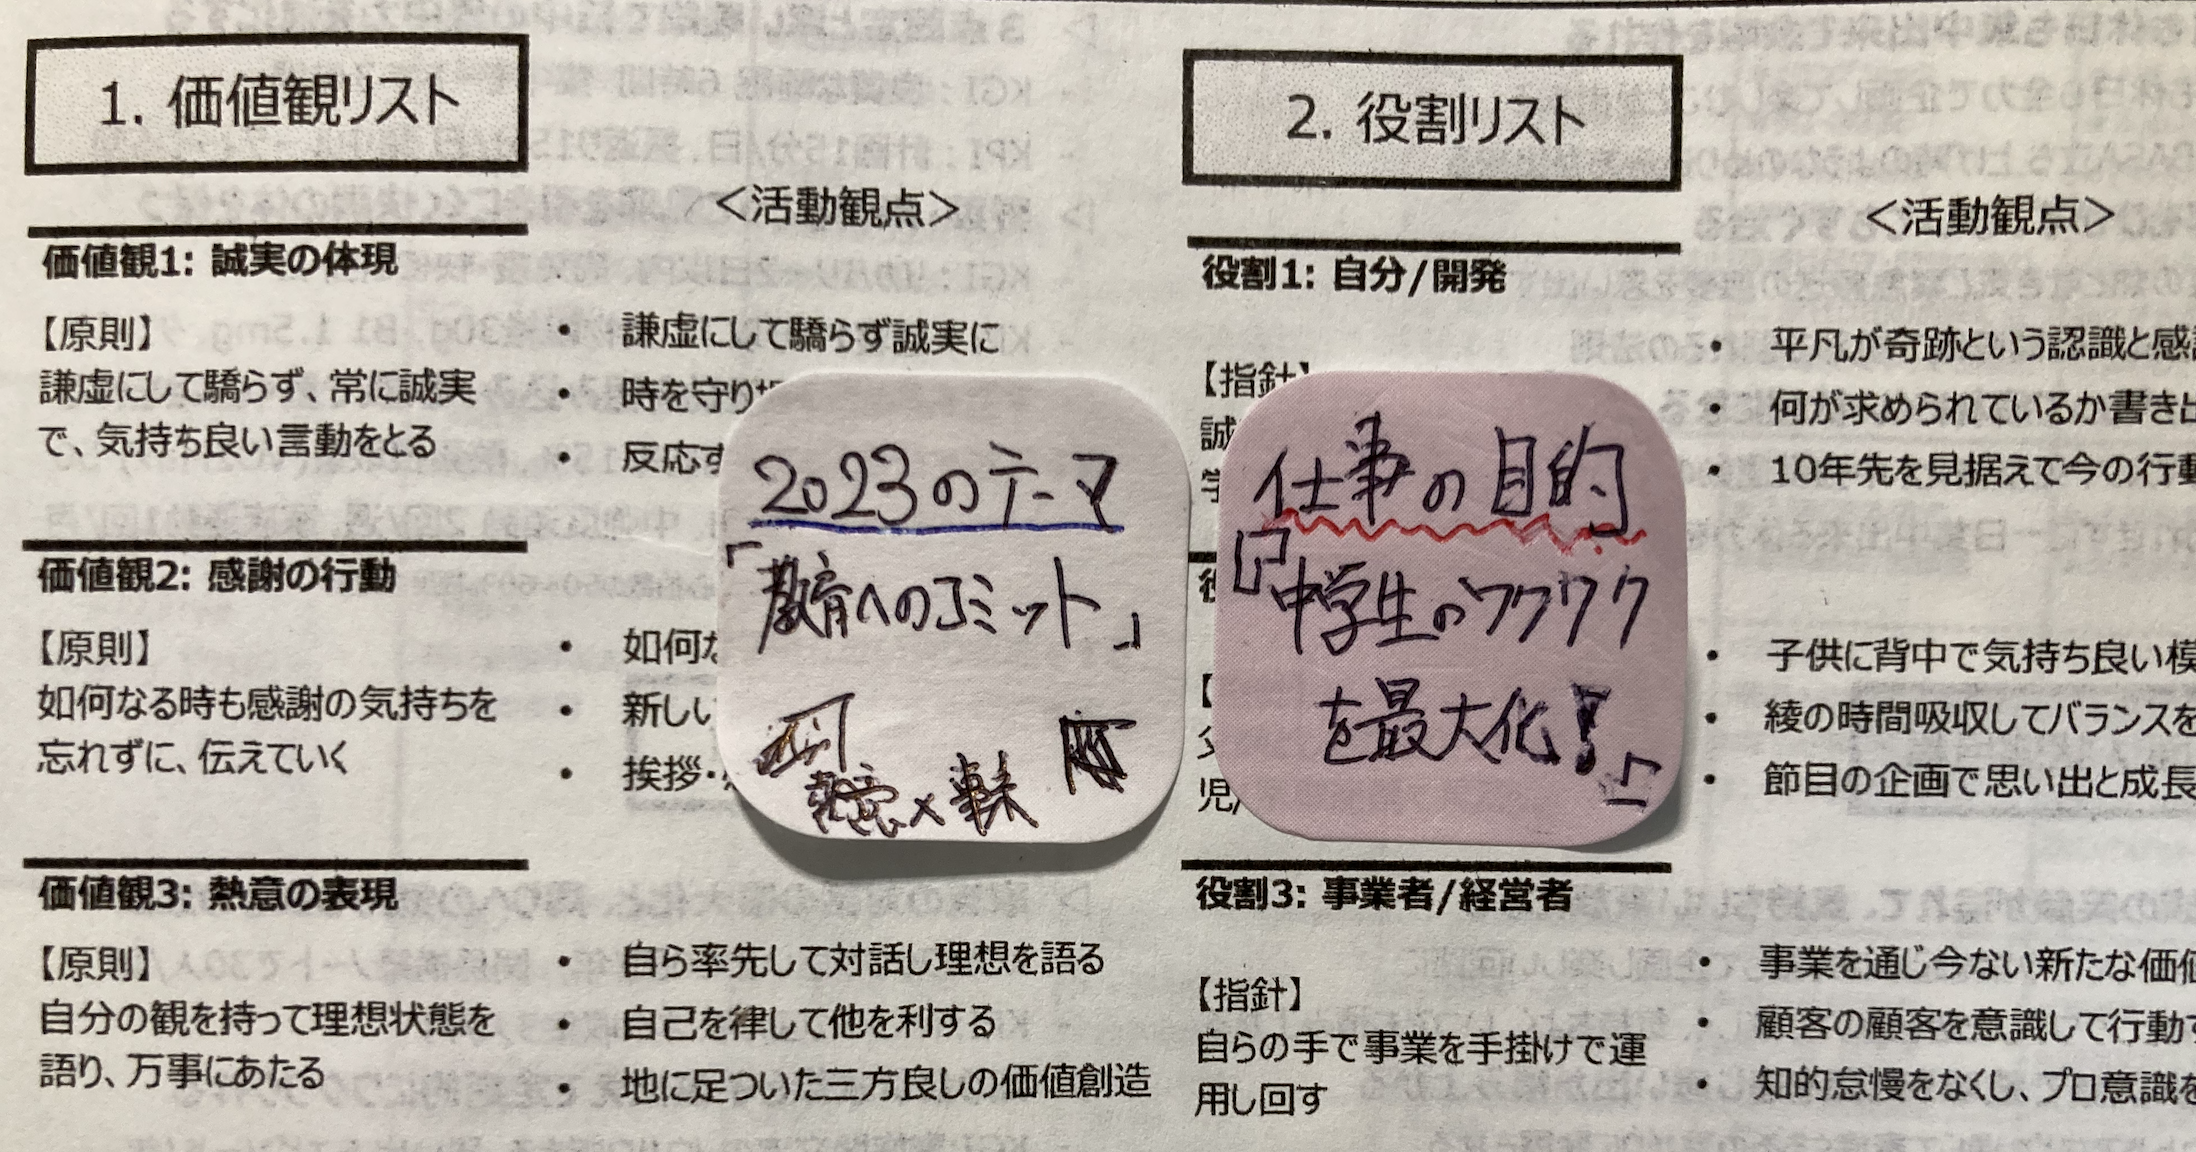 1. 価値観リスト
<活動観点>
価値観1: 誠実の体現
【原則】
謙虚にして驕らず、常に誠実
で、気持ち良い言動をとる
• 謙虚にして驕らず誠実に
• 時を守り
• 反応す
価値観2: 感謝の行動
【原則】
如何なる時も感謝の気持ちを
忘れずに、伝えていく
• 如何な
• 新しい
• 挨拶・
価値観3: 熱意の表現
【原則】
自分の観を持って理想状態を
語り、万事にあたる
• 自ら率先して対話し理想を語る
• 自己を律して他を利する
• 地に足ついた三方良しの価値創造
2023のテーマ
「教育へのコミット」
熱意×
仕事の目的
『中学生のワクワク
を最大化!』
2. 役割リスト
<活動観点>
役割1: 自分/開発
【指針】
誠
学
• 平凡が奇跡という認識と感謝
• 何が求められているか書き出
• 10年先を見据えて今の行動
役
【
父
児/
• 子供に背中で気持ち良い模
• 綾の時間吸収してバランスを
• 節目の企画で思い出と成長
役割3: 事業者/経営者
【指針】
自らの手で事業を手掛けで運
用し回す
• 事業を通じ今ない新たな価値
• 顧客の顧客を意識して行動す
• 知的怠慢をなくし、プロ意識を